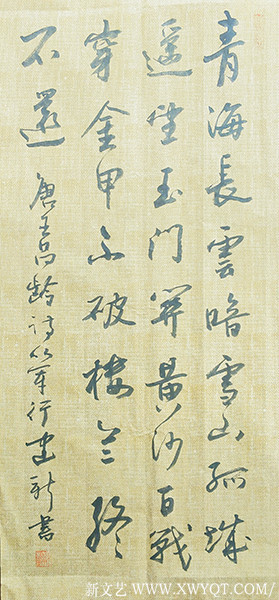 青海長雲暗雪山孤城
遥望玉門關黃沙百戰
穿金甲不破樓兰終
不還
唐王昌龄詩从軍行建新書
新文艺 WWW.XWYQT.COM